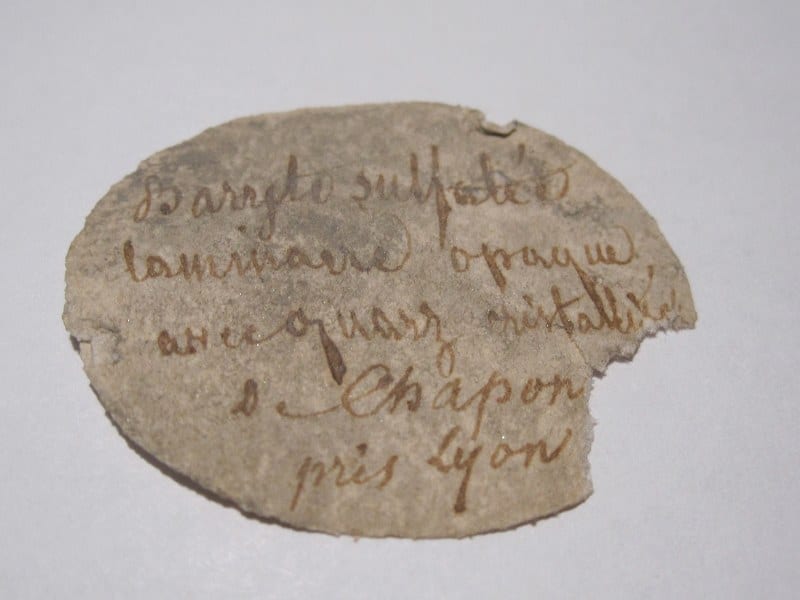 Barryte sulfatée
laminaire opaque
avec quarz cristallisé
de Chapon
près Lyon